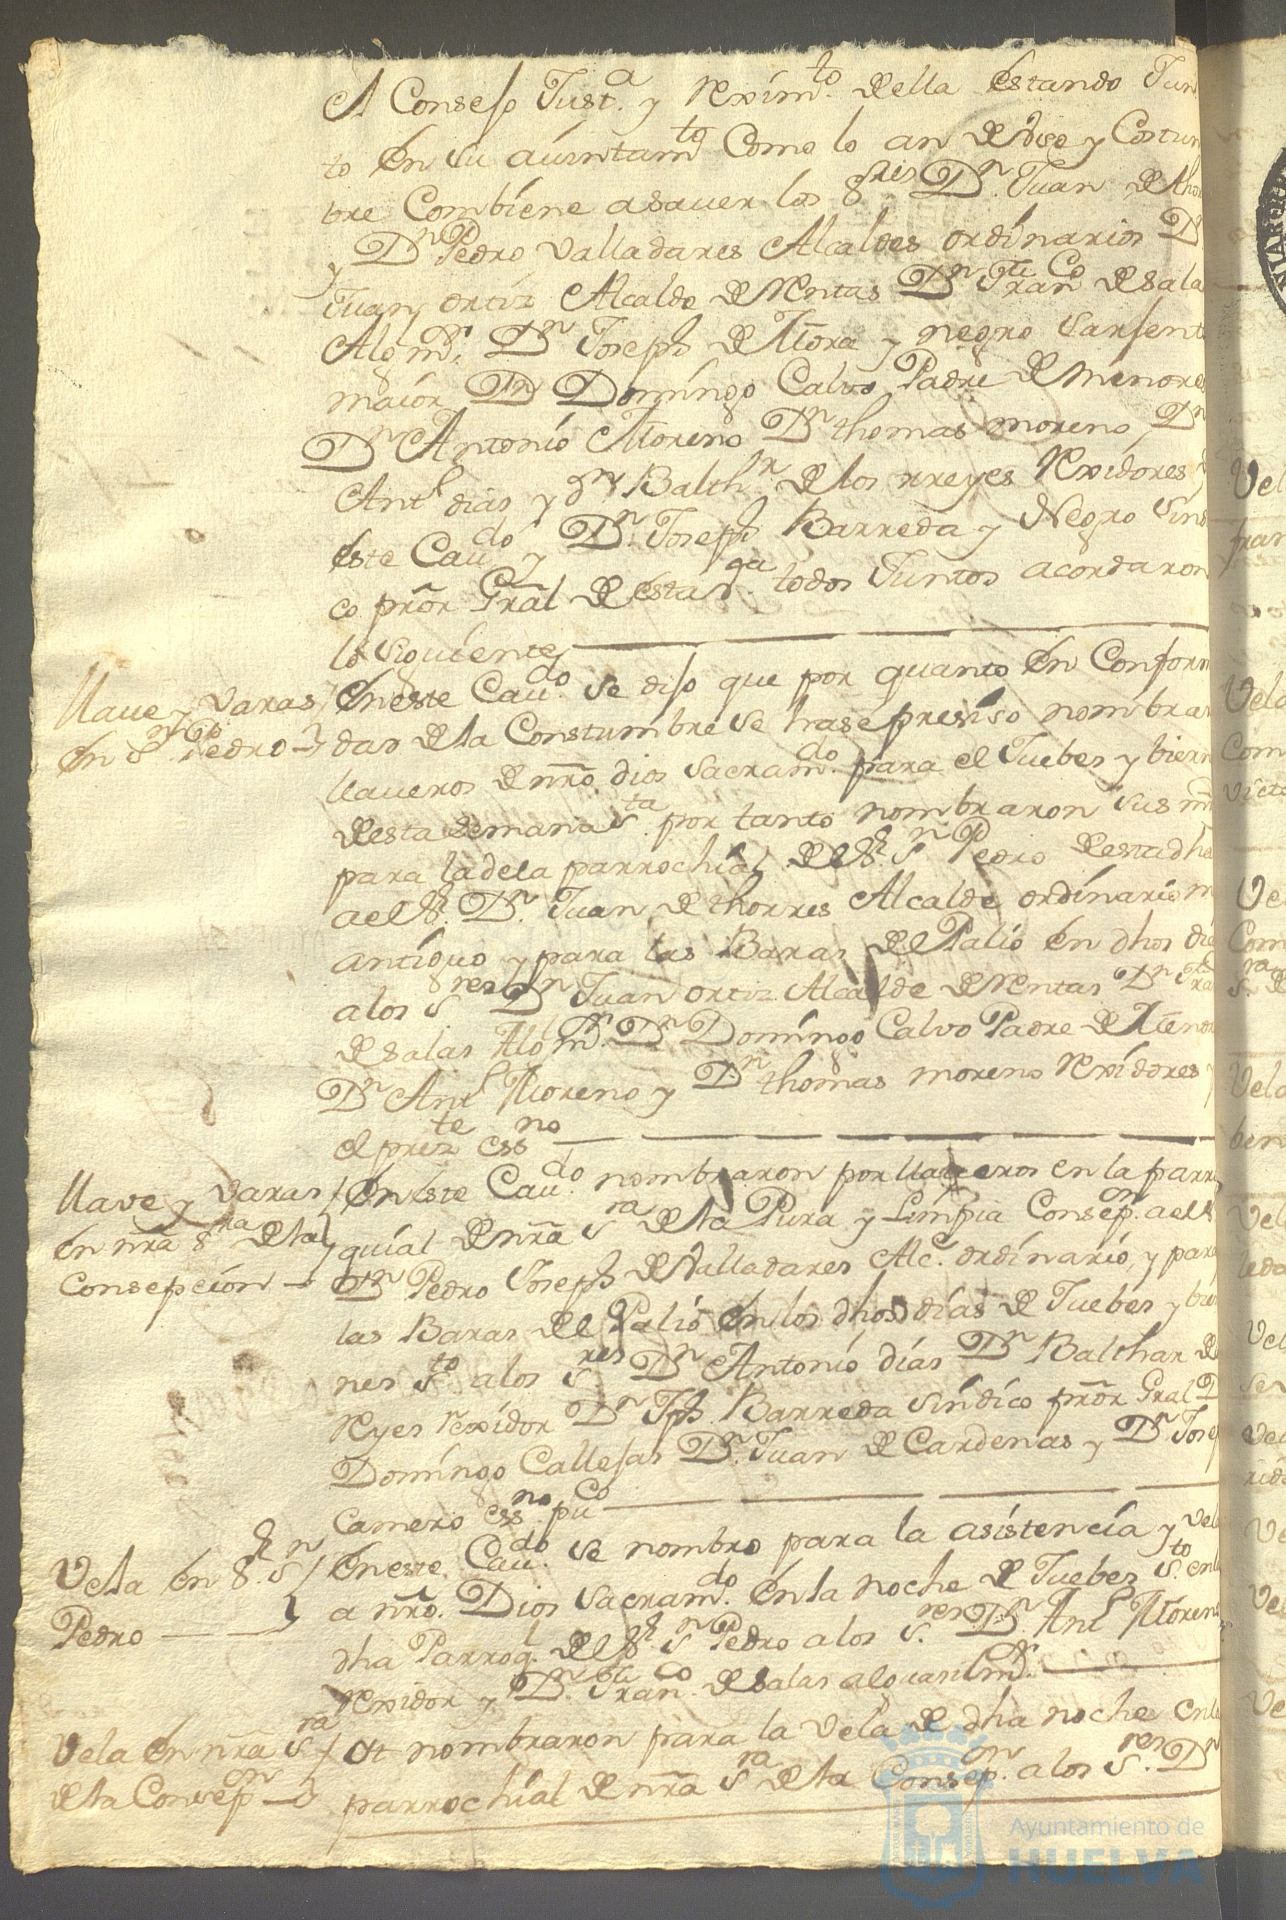 el Consejo Just.ª y Reximto della estando Jun
to en su auintamto Como lo an de uso y Costum
bre Combiene asauer los Sres Dn Juan de thor
y Dn Pedro Valladares Alcaldes ordinarios D
Juan ortiz Alcalde de Rentas Dn Franco de sala
Alg mr Dn Joseph de Mora y negro Sarjent
maior Dn Domingo Calvo Padre de menores
Dn Antonio Moreno Dn thomas moreno Dn
Antº dias y Dn Balthr de los rreyes Rexidores
este Caudo y Dn Joseph Barreda y Negro Sind
co pror Gral de esta va todos Juntos acordaron
lo siguiente
Llaue y varas
en Sr Sn Pedro
en este Caudo se dijo que por quanto en Conform
dad de la Constumbre se hase presiso nombrar
llaueros de nro dios sacramdo para el Juebes y biern
de esta semana sta por tanto nombraron sus md
para la de la parrochial del Sr Sn Pedro de esta dha
a el Sr Dn Juan de thorres Alcalde ordinario m
antiguo y para las Baras de el Palio en dhos dia
a los Sres Dn Juan ortiz Alcalde de Rentas Dn Fra
de salas Alg mr Dn Domingo Calvo Padre de Menor
Dn Antº Moreno y Dn thomas moreno Rexidores y
el preste essno
Llave y varas
en nra Sra de la
Consepcion
en este Caudo nombraron por llaueros en la parro
quial de nra Sra de la Pura y Limpia Consepon a el S
Dn Pedro Joseph de Valladares Alce ordinario y para
las Baras de el Palio en los dhos dias de Juebes y bier
nes Sto a los Sres Dn Antonio dias Dn Balthar de
Reyes Rexidor Dn Jph Barreda sindico pror Gral D
Domingo Callejas Dn Juan de Cardenas y Dn Josep
Camero essno puco
Vela en Sr Sn
Pedro
en este Caudo se nombro para la asistencia y vela
a nro Dios sacramdo en la noche de Juebes sto en la
dha Parroq. de el Sr Sn Pedro a los Sres Dn Antº Moreno
rexidor y Dn Franco de salas alguasil mr
Vela en nra Sra
de la Consepon
Ot nombraron para la vela de dha noche en la
parrochial de nra Sra de la Consepon a los Sres Dn
Ayuntamiento de
HUELVA